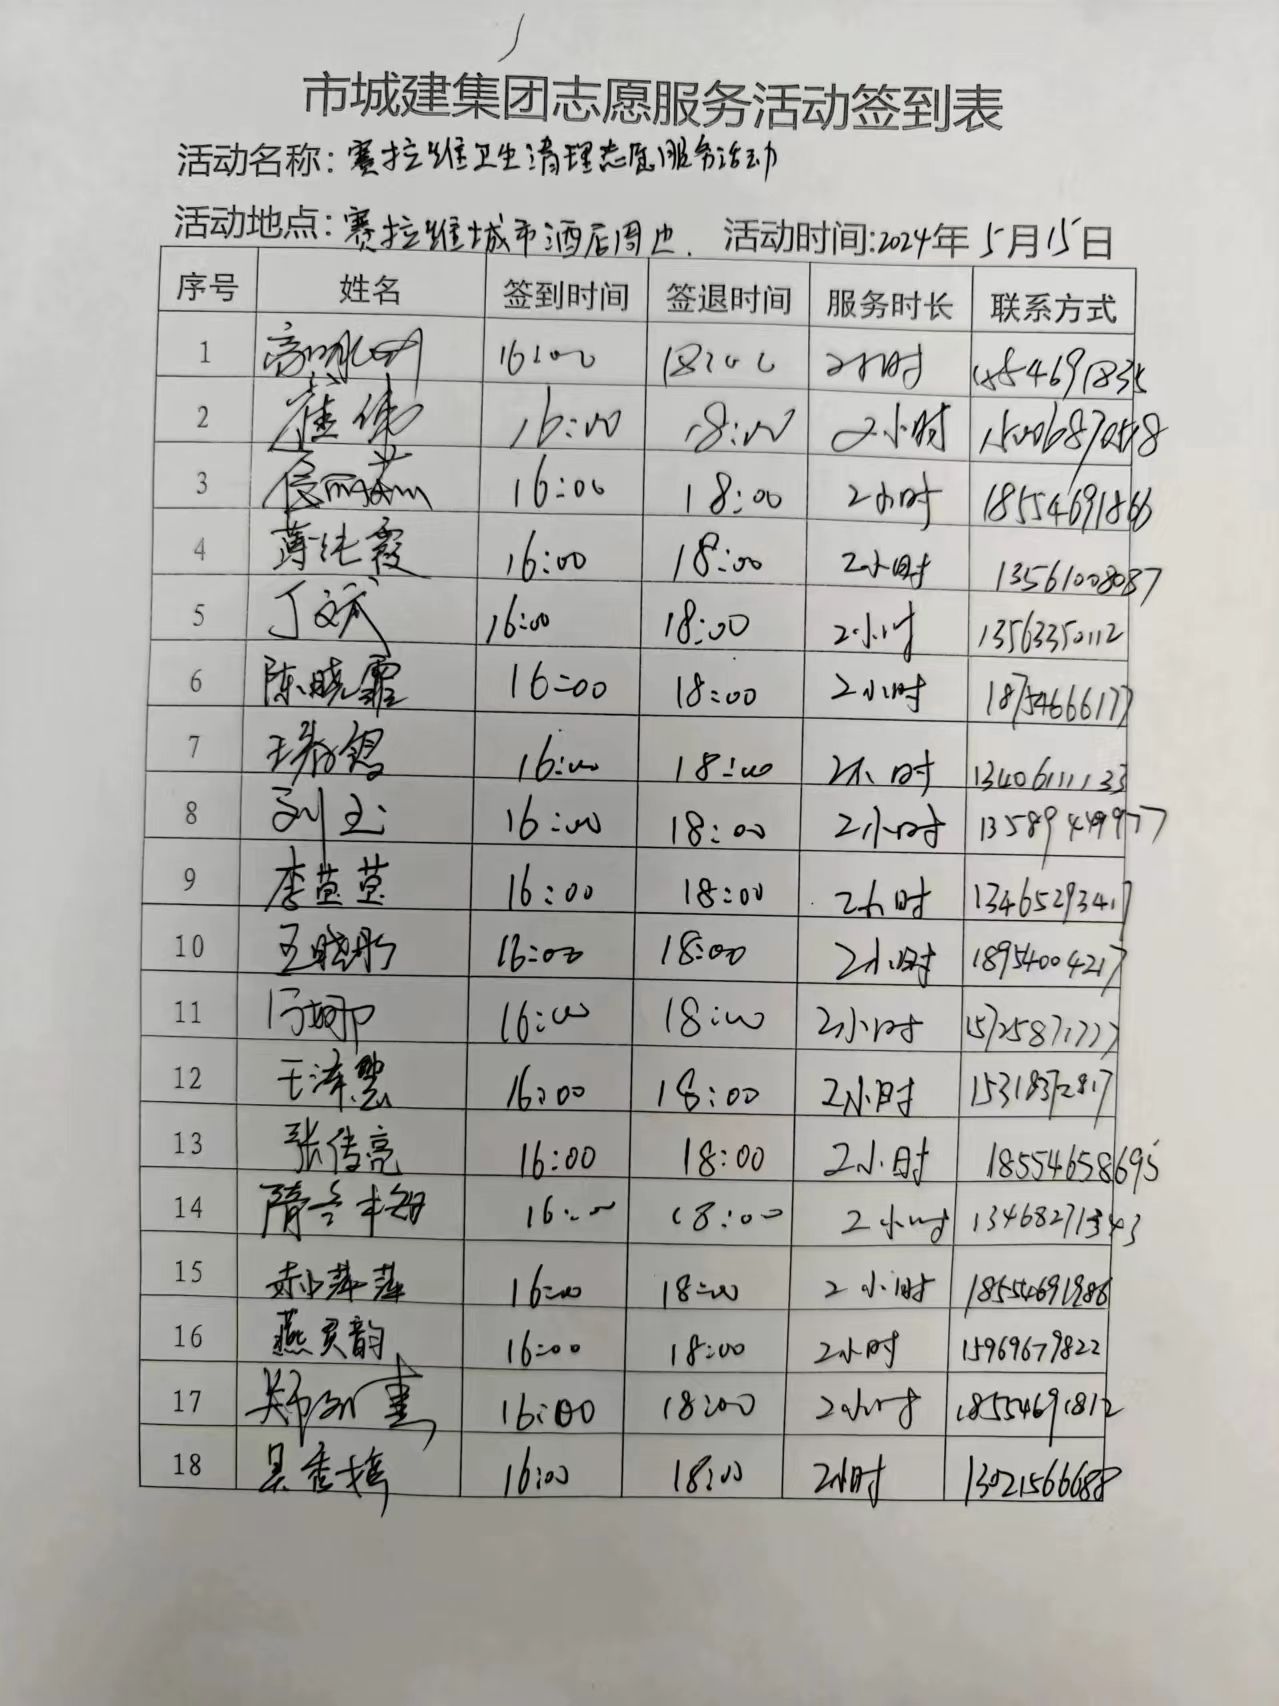 市城建集团志愿服务活动签到表
活动名称：赛拉维卫生清理志愿服务活动
活动地点：赛拉维城市酒店周边. 活动时间:2024年5月15日
序号 姓名 签到时间 签退时间 服务时长 联系方式
1 16:00 18:00 2小时
2 崔伟 16:00 18:00 2小时
3 16:00 18:00 2小时 18554691866
4 薄纯霞 16:00 18:00 2小时 13561008087
5 丁文斌 16:00 18:00 2小时 13563350112
6 陈晓霏 16:00 18:00 2小时 18754666177
7 16:00 18:00 2小时 13406111133
8 刘玉 16:00 18:00 2小时 13589449977
9 李莹莹 16:00 18:00 2小时 13465293417
10 王晓彤 16:00 18:00 2小时 18954004217
11 冯娜 16:00 18:00 2小时 15725871777
12 王泽慧 16:00 18:00 2小时 15318372817
13 张传亮 16:00 18:00 2小时 18554658695
14 16:00 18:00 2小时 13468271343
15 郝萍萍 16:00 18:00 2小时 18554691986
16 燕灵韵 16:00 18:00 2小时 15969679822
17 16:00 18:00 2小时 18554691812
18 吴秀婷 16:00 18:00 2小时 13021566688